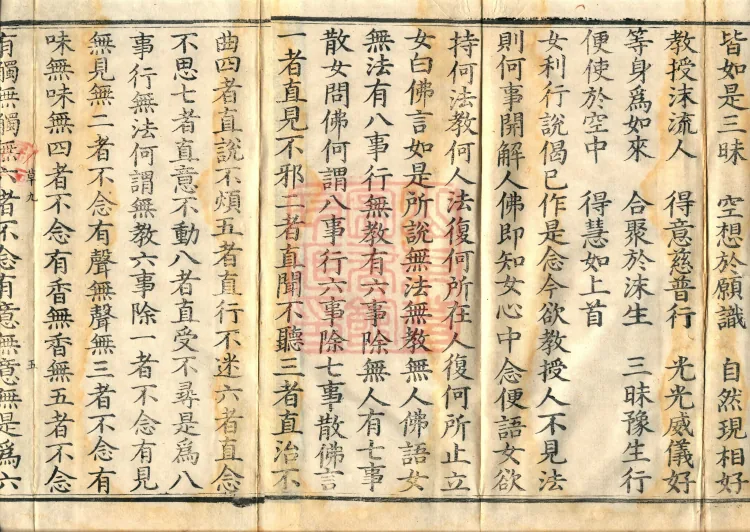 皆如是三昧　空想於願識　自然現相好
教授沫流人　得意慈普行　光光威儀好
等身爲如來　合聚於沫生　三昧豫生行
便使於空中　得慧如上首
女利行說偈已作是念今欲教授人不見法
則何事開解人佛即知女心中念便語女欲
持何法教何人法復何所在人復何所止立
女白佛言如是所說無法無教無人佛語女
無法有八事行無教有六事除無人有七事
散女問佛何謂八事行六事除七事散佛言
一者直見不邪二者直聞不聽三者直治不
曲四者直說不煩五者直行不迷六者直念
不思七者直意不動八者直受不尋是爲八
事行無法何謂無教六事除一者不念有見
無見無二者不念有聲無聲無三者不念有
味無味無四者不念有香無香無五者不念
草九
五
有觸無觸無六者不念有意無意無是爲六